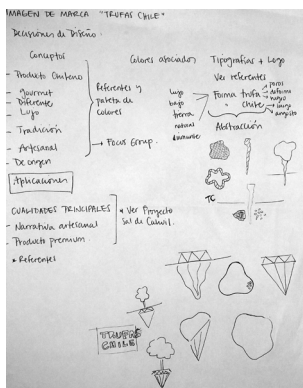 IMAGEN DE MARCA "TRUFAS CHILE"
Decisiones de Diseño.
Conceptos
- Producto Chileno
- gourmet
- Diferente
- Lujo
- Tradición
- Artesanal
- De origen
Aplicaciones
Referentes y
paleta de
colores
→ Focus Group.
Colores asociados
lujo
bajo
tierra
natural
Tipografías + Logo
Ver referentes
Forma trufa
poros
deforme
negro
" chile
largo
angosto
Abstracción
TC
CUALIDADES PRINCIPALES
- Narrativa artesanal
- Producto premium.
* Referentes
* Ver Proyecto
Sal de Cahuil.
TRUFAS
CHILE